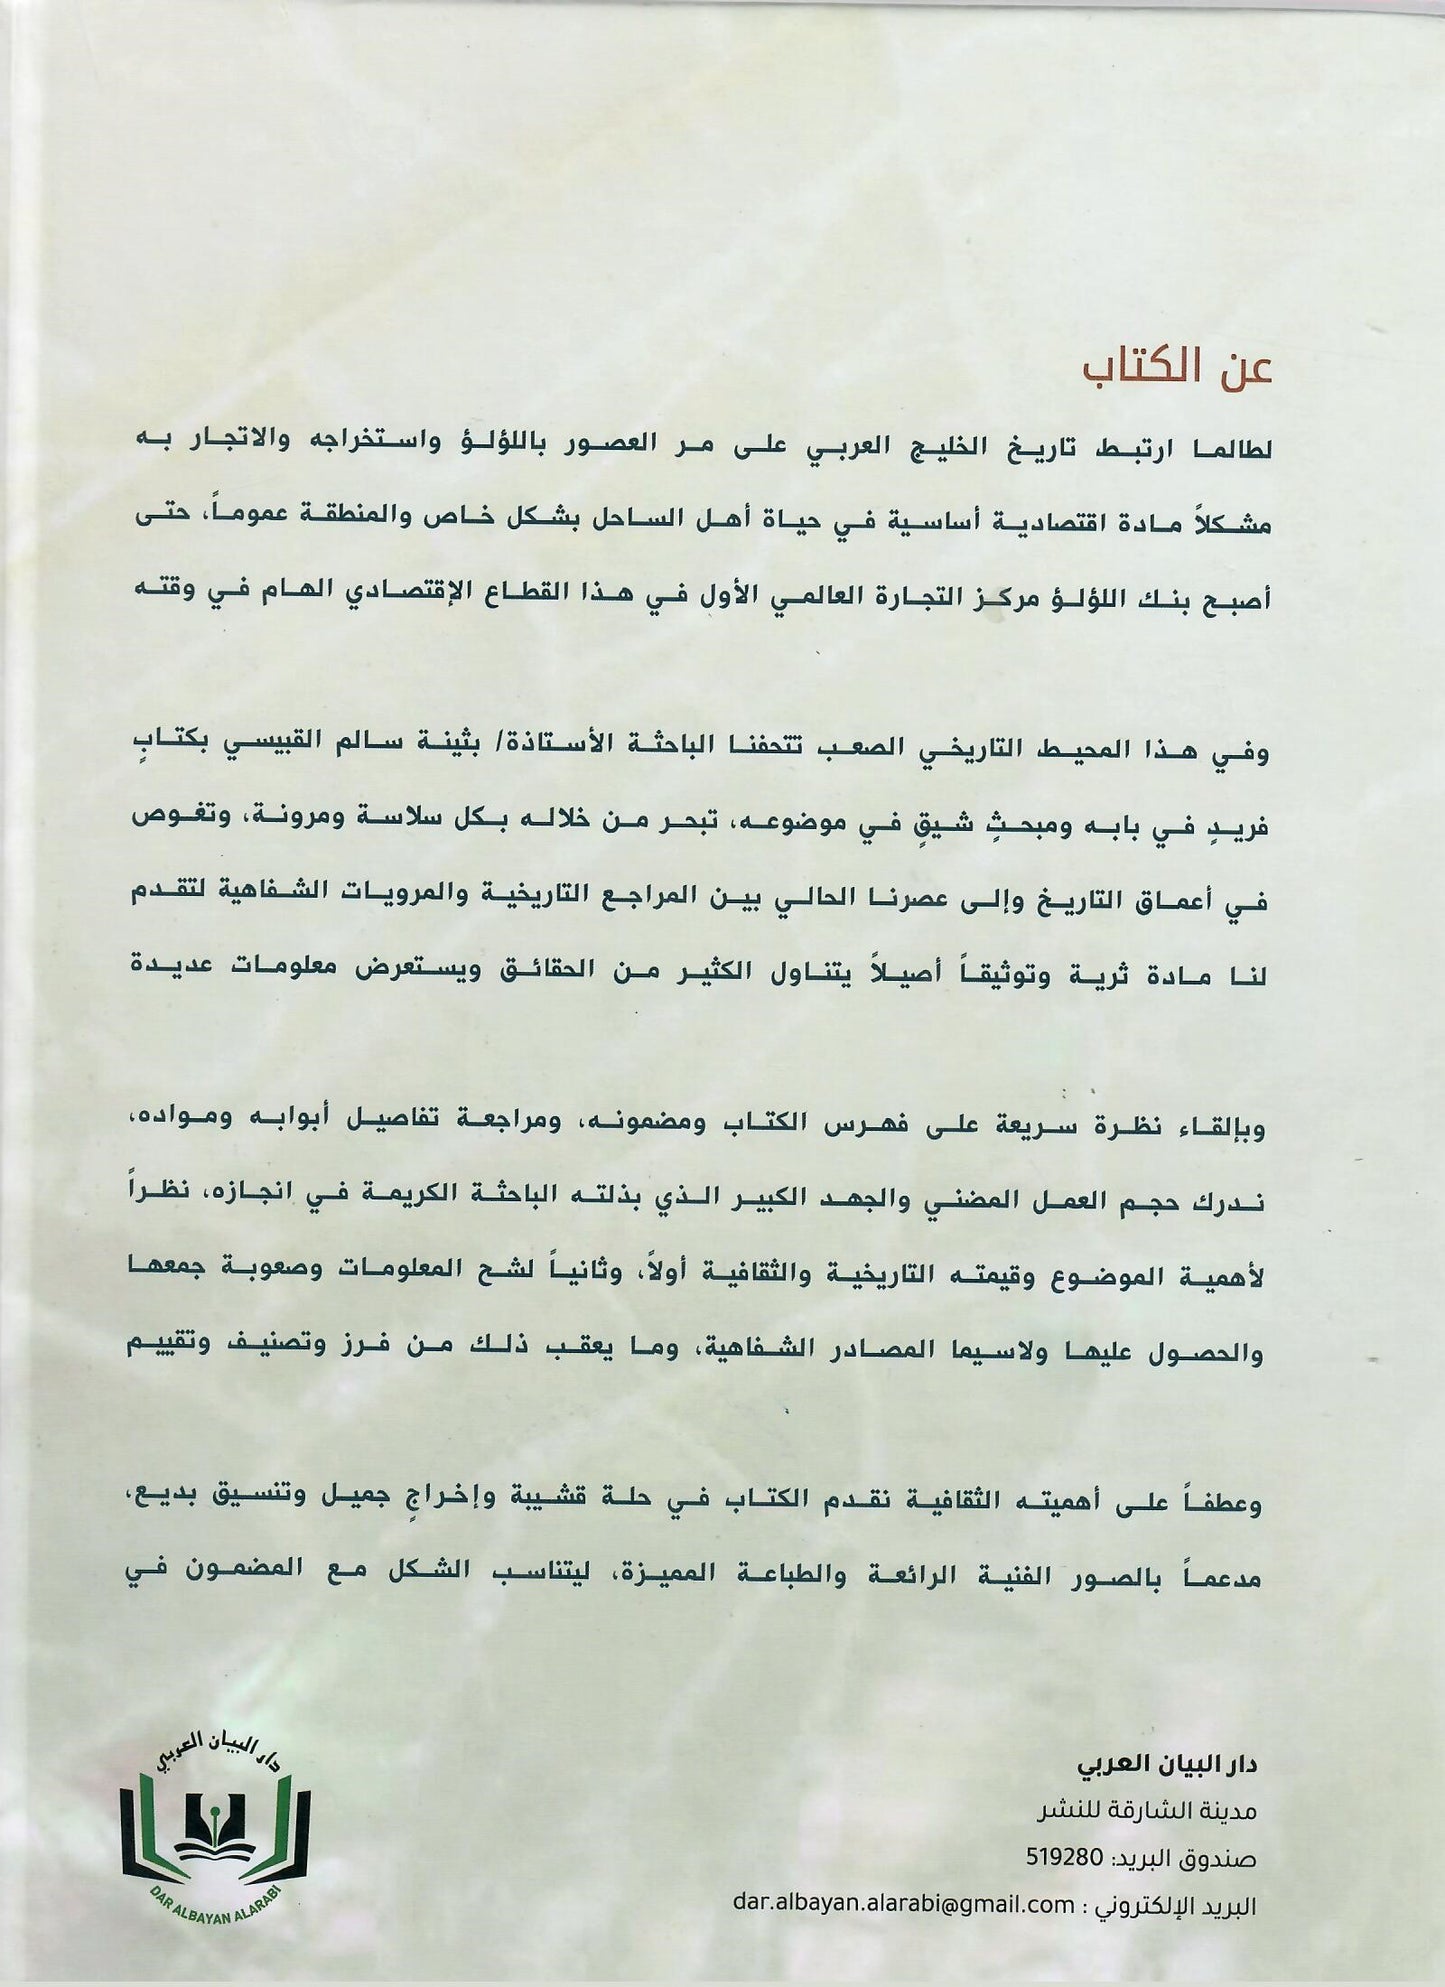 عن الكتاب
لطالما ارتبط تاريخ الخليج العربي على مر العصور باللؤلؤ واستخراجه والاتجار به
مشكلاً مادة اقتصادية أساسية في حياة أهل الساحل بشكل خاص والمنطقة عموماً، حتى
أصبح بنك اللؤلؤ مركز التجارة العالمي الأول في هذا القطاع الإقتصادي الهام في وقته
وفي هذا المحيط التاريخي الصعب تتحفنا الباحثة الأستاذة/ بثينة سالم القبيسي بكتابٍ
فريدٍ في بابه ومبحثٍ شيقٍ في موضوعه، تبحر من خلاله بكل سلاسة ومرونة، وتغوص
في أعماق التاريخ وإلى عصرنا الحالي بين المراجع التاريخية والمرويات الشفاهية لتقدم
لنا مادة ثرية وتوثيقاً أصيلاً يتناول الكثير من الحقائق ويستعرض معلومات عديدة
وبإلقاء نظرة سريعة على فهرس الكتاب ومضمونه، ومراجعة تفاصيل أبوابه ومواده،
ندرك حجم العمل المضني والجهد الكبير الذي بذلته الباحثة الكريمة في انجازه، نظراً
لأهمية الموضوع وقيمته التاريخية والثقافية أولاً، وثانياً لشح المعلومات وصعوبة جمعها
والحصول عليها ولاسيما المصادر الشفاهية، وما يعقب ذلك من فرز وتصنيف وتقييم
وعطفاً على أهميته الثقافية نقدم الكتاب في حلة قشيبة وإخراجٍ جميل وتنسيق بديع،
مدعماً بالصور الفنية الرائعة والطباعة المميزة، ليتناسب الشكل مع المضمون في
دار البيان العربي
مدينة الشارقة للنشر
صندوق البريد: 519280
البريد الإلكتروني : dar.albayan.alarabi@gmail.com
دار البيان العربي
DAR ALBAYAN ALARABI